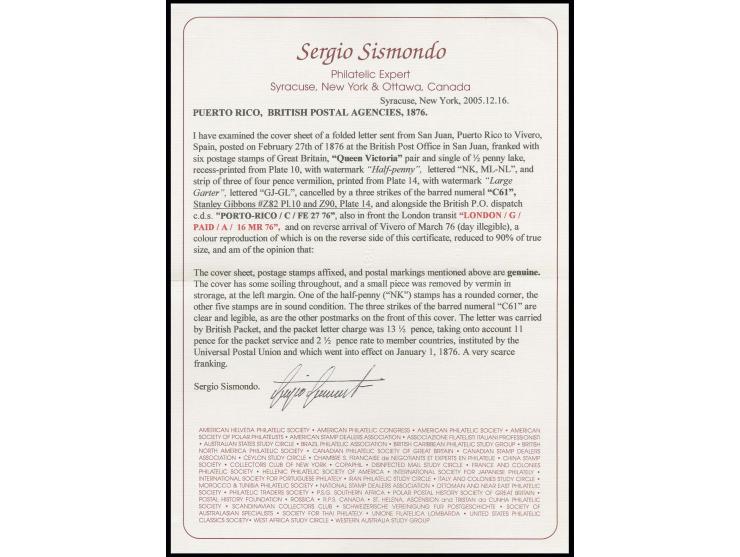 Sergio Sismondo
Philatelic Expert
Syracuse, New York & Ottawa, Canada
Syracuse, New York, 2005.12.16.
PUERTO RICO, BRITISH POSTAL AGENCIES, 1876.
I have examined the cover sheet of a folded letter sent from San Juan, Puerto Rico to Vivero,
Spain, posted on February 27th of 1876 at the British Post Office in San Juan, franked with
six postage stamps of Great Britain, "Queen Victoria" pair and single of ½ penny lake,
recess-printed from Plate 10, with watermark "Half-penny", lettered "NK, ML-NL", and
strip of three of four pence vermilion, printed from Plate 14, with watermark "Large
Garter", lettered "GJ-GL", cancelled by a three strikes of the barred numeral "C61",
Stanley Gibbons #Z82 Pl.10 and Z90, Plate 14, and alongside the British P.O. dispatch
c.d.s. "PORTO-RICO / C / FE 27 76", also in front the London transit "LONDON / G /
PAID / A / 16 MR 76", and on reverse arrival of Vivero of March 76 (day illegible), a
colour reproduction of which is on the reverse side of this certificate, reduced to 90% of true
size, and am of the opinion that:
The cover sheet, postage stamps affixed, and postal markings mentioned above are genuine.
The cover has some soiling throughout, and a small piece was removed by vermin in
strorage, at the left margin. One of the half-penny ("NK") stamps has a rounded corner, the
other five stamps are in sound condition. The three strikes of the barred numeral "C61" are
clear and legible, as are the other postmarks on the front of this cover. The letter was carried
by British Packet, and the packet letter charge was 13 ½ pence, taking onto account 11
pence for the packet service and 2 ½ pence rate to member countries, instituted by the
Universal Postal Union and which went into effect on January 1, 1876. A very scarce
franking.
Sergio Sismondo.
AMERICAN HELVETIA PHILATELIC SOCIETY • AMERICAN PHILATELIC CONGRESS • AMERICAN PHILATELIC SOCIETY • AMERICAN
SOCIETY OF POLAR PHILATELISTS • AMERICAN STAMP DEALERS ASSOCIATION • ASSOCIAZIONE FILATELISTI ITALIANI PROFESSIONISTI
• AUSTRALIAN STATES STUDY CIRCLE • BRAZIL PHILATELIC ASSOCIATION • BRITISH CARIBBEAN PHILATELIC STUDY GROUP • BRITISH
NORTH AMERICA PHILATELIC SOCIETY • CANADIAN PHILATELIC SOCIETY OF GREAT BRITAIN • CANADIAN STAMP DEALERS
ASSOCIATION • CEYLON STUDY CIRCLE • CHAMBRE S. FRANCAISE de NEGOTIANTS ET EXPERTS EN PHILATELIE • CHINA STAMP
SOCIETY • COLLECTORS CLUB OF NEW YORK • COPAPHIL • DISINFECTED MAIL STUDY CIRCLE • FRANCE AND COLONIES
PHILATELIC SOCIETY • HELLENIC PHILATELIC SOCIETY OF AMERICA • INTERNATIONAL SOCIETY FOR JAPANESE PHILATELY •
INTERNATIONAL SOCIETY FOR PORTUGUESE PHILATELY • IRAN PHILATELIC STUDY CIRCLE • ITALY AND COLONIES STUDY CIRCLE •
MOROCCO & TUNISIA PHILATELIC SOCIETY • NATIONAL STAMP DEALERS ASSOCIATION • OTTOMAN AND NEAR EAST PHILATELIC
SOCIETY • PHILATELIC TRADERS SOCIETY • P.S.G. SOUTHERN AFRICA • POLAR POSTAL HISTORY SOCIETY OF GREAT BRITAIN •
POSTAL HISTORY FOUNDATION • ROSSICA • R.P.S. CANADA • ST. HELENA, ASCENSION and TRISTAN da CUNHA PHILATELIC
SOCIETY • SCANDINAVIAN COLLECTORS CLUB • SCHWEIZERISCHE VEREINIGUNG FUR POSTGESCHICHTE • SOCIETY OF
AUSTRALASIAN SPECIALISTS • SOCIETY FOR THAI PHILATELY • UNIONE FILATELICA LOMBARDA • UNITED STATES PHILATELIC
CLASSICS SOCIETY • WEST AFRICA STUDY CIRCLE • WESTERN AUSTRALIA STUDY GROUP